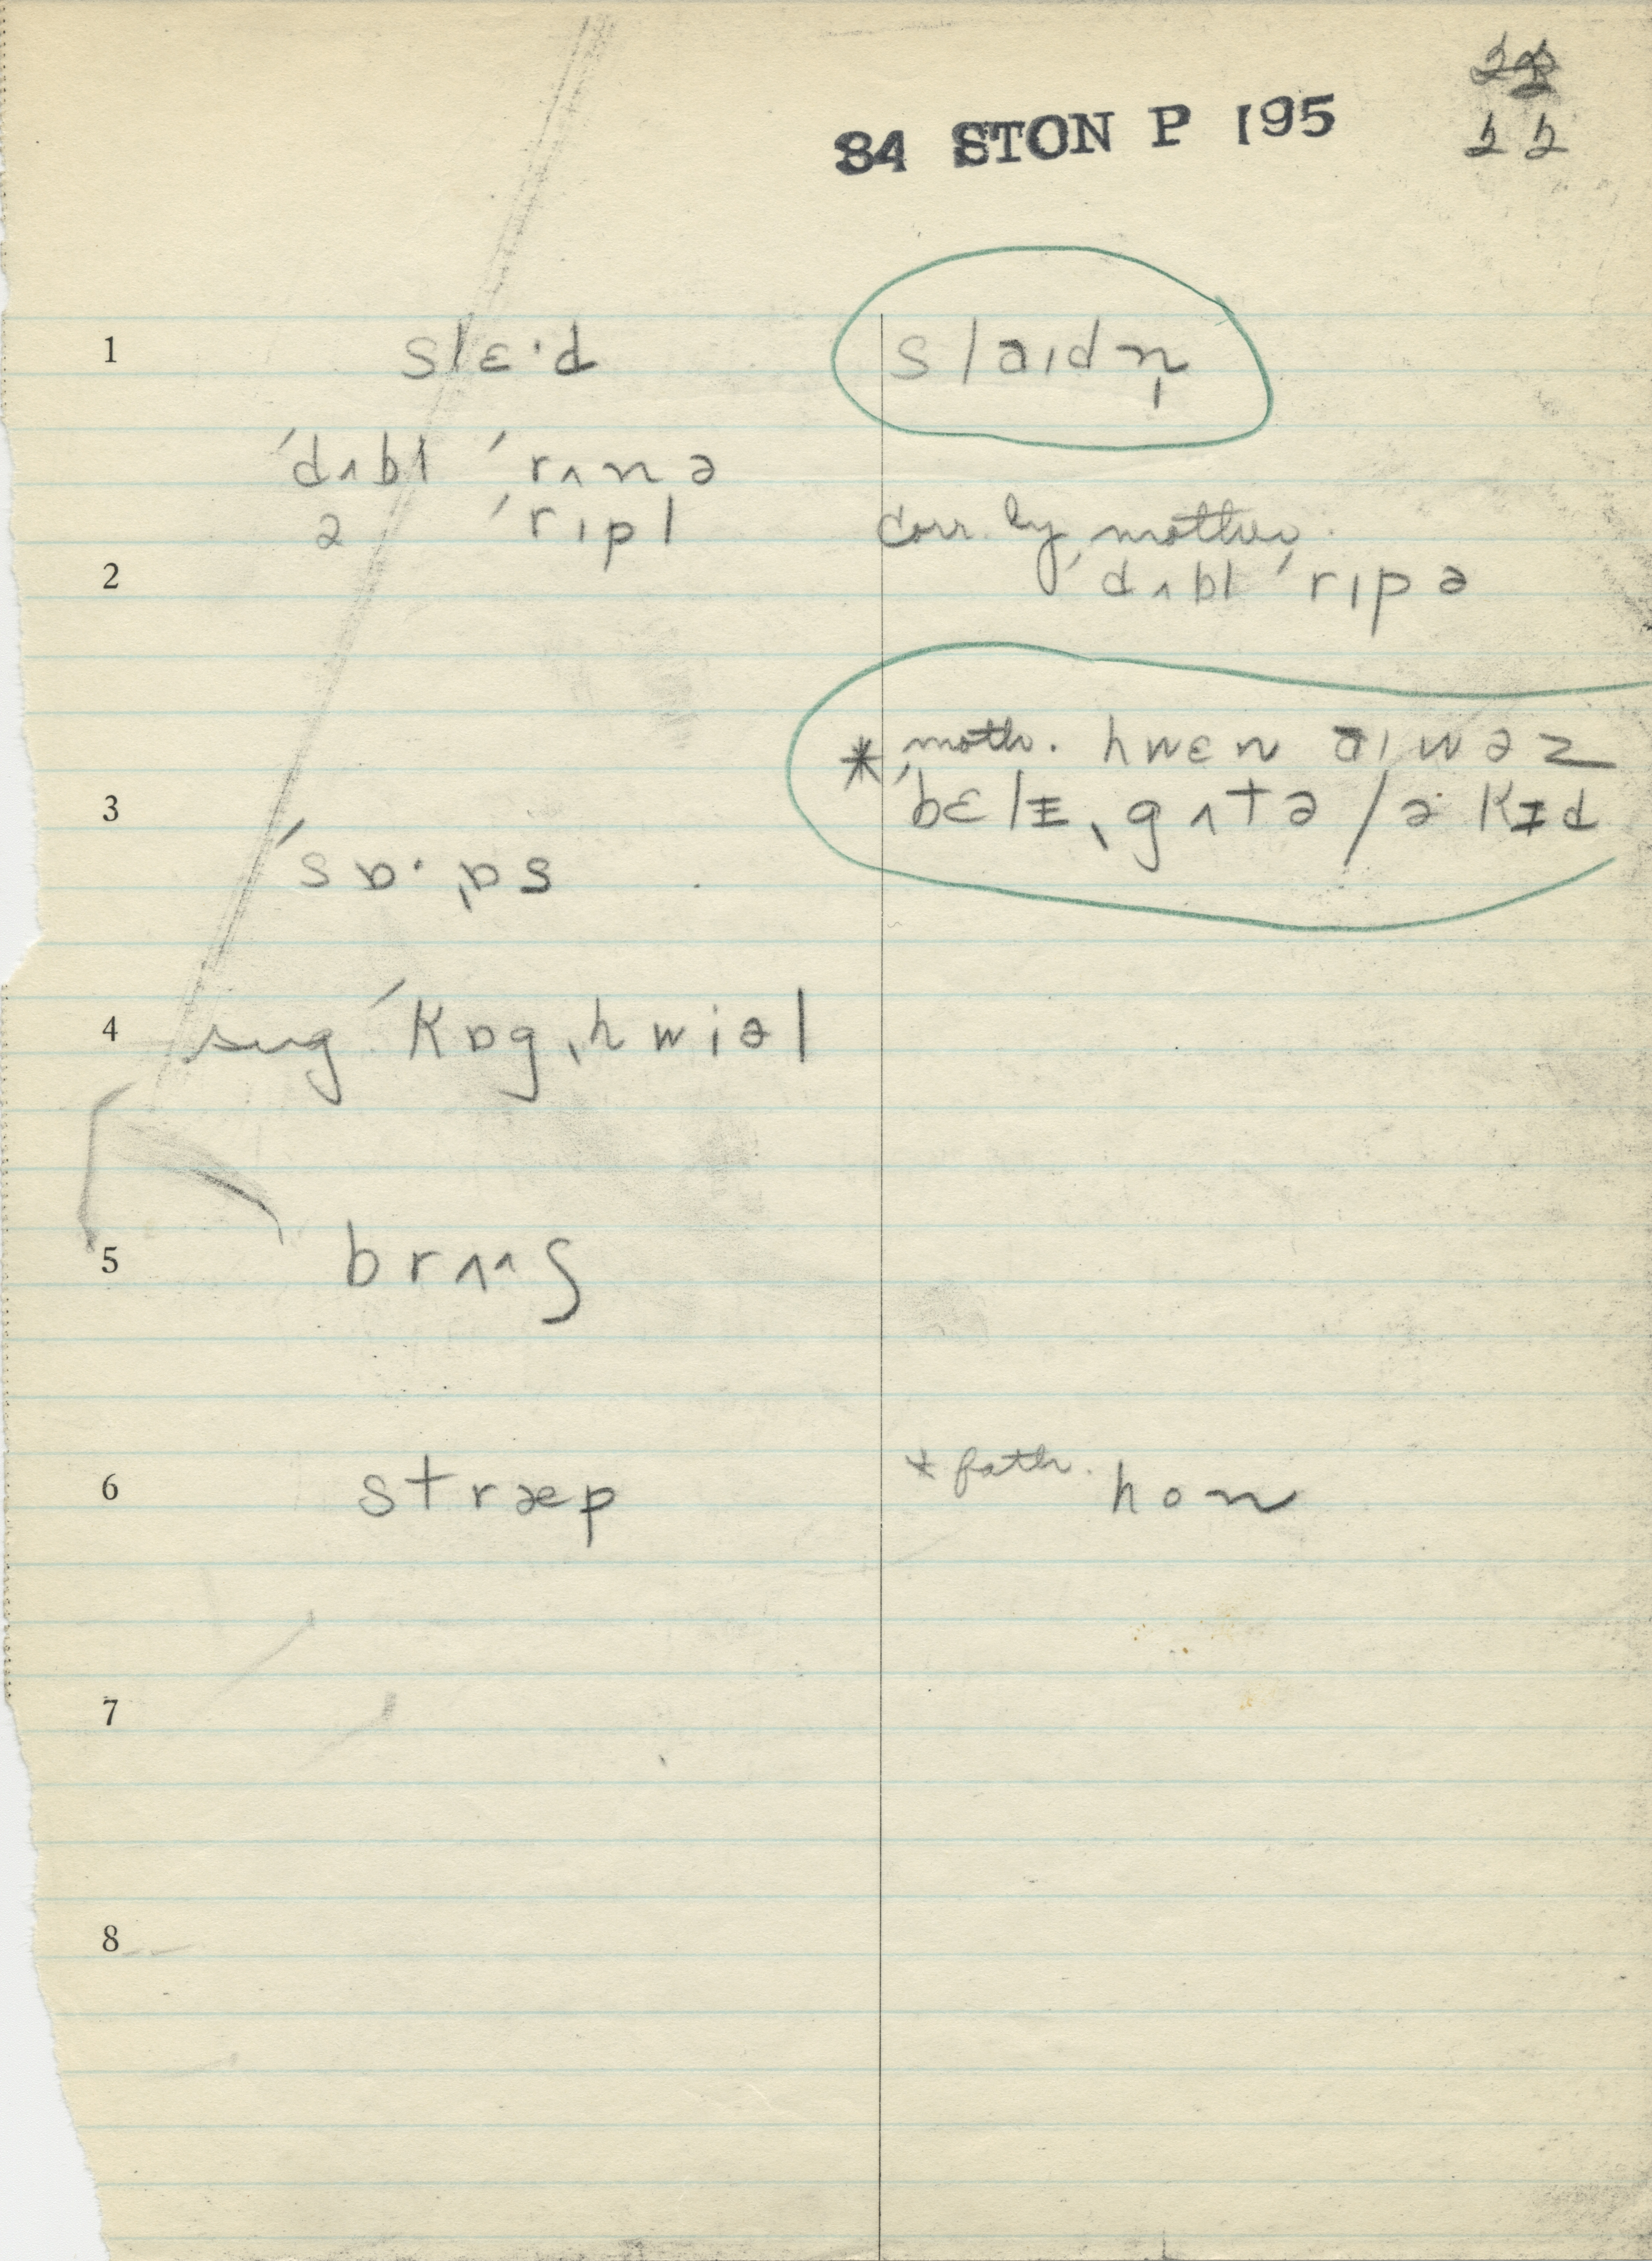 22
84 STON P 195
22
1 slɛ·d
slaɪdn̩
ˈdʌbl ˈrʌnə
ə ˈrɪpl
corr. by mother.
2 ˈdʌbl ˈrɪpə
* moth. hwɛn aɪ wəz
3 ˈbɛlɪˌgʌtə / ə kɪd
ˈsɒ·ˌɒs
4 sug ˈkɒgˌhwiəl
5 brʌ^ʃ
6 stræp
* fath. hon
7
8